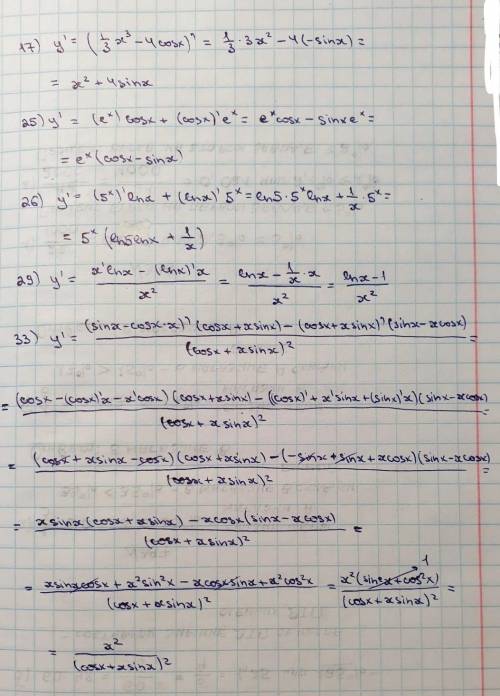 17) y' = (1/3 x³ - 4cosx)' = 1/3 · 3x² - 4(-sinx) =
= x² + 4sinx
25) y' = (eˣ)'cosx + (cosx)'eˣ = eˣcosx - sinxeˣ =
= eˣ(cosx - sinx)
26) y' = (5ˣ)'lnx + (lnx)'5ˣ = ln5·5ˣlnx + 1/x · 5ˣ =
= 5ˣ(ln5lnx + 1/x)
29) y' = (x'lnx - (lnx)'x)/x² = (lnx - 1/x · x)/x² = (lnx - 1)/x²
33) y' = ((sinx - cosx·x)'(cosx + xsinx) - (cosx + xsinx)'(sinx - xcosx))/(cosx + xsinx)² =
= ((cosx - (cosx)'x - x'cosx)(cosx + xsinx) - ((cosx)' + x'sinx + (sinx)'x)(sinx - xcosx))/(cosx + xsinx)² =
= ((cosx + xsinx - cosx)(cosx + xsinx) - (-sinx + sinx + xcosx)(sinx - xcosx))/(cosx + xsinx)² =
= (xsinx(cosx + xsinx) - xcosx(sinx - xcosx))/(cosx + xsinx)² =
= (xsinxcosx + x²sin²x - xcosxsinx + x²cos²x)/(cosx + xsinx)² = (x²(sin²x + cos²x))/(cosx + xsinx)² =
1
= x²/(cosx + xsinx)²